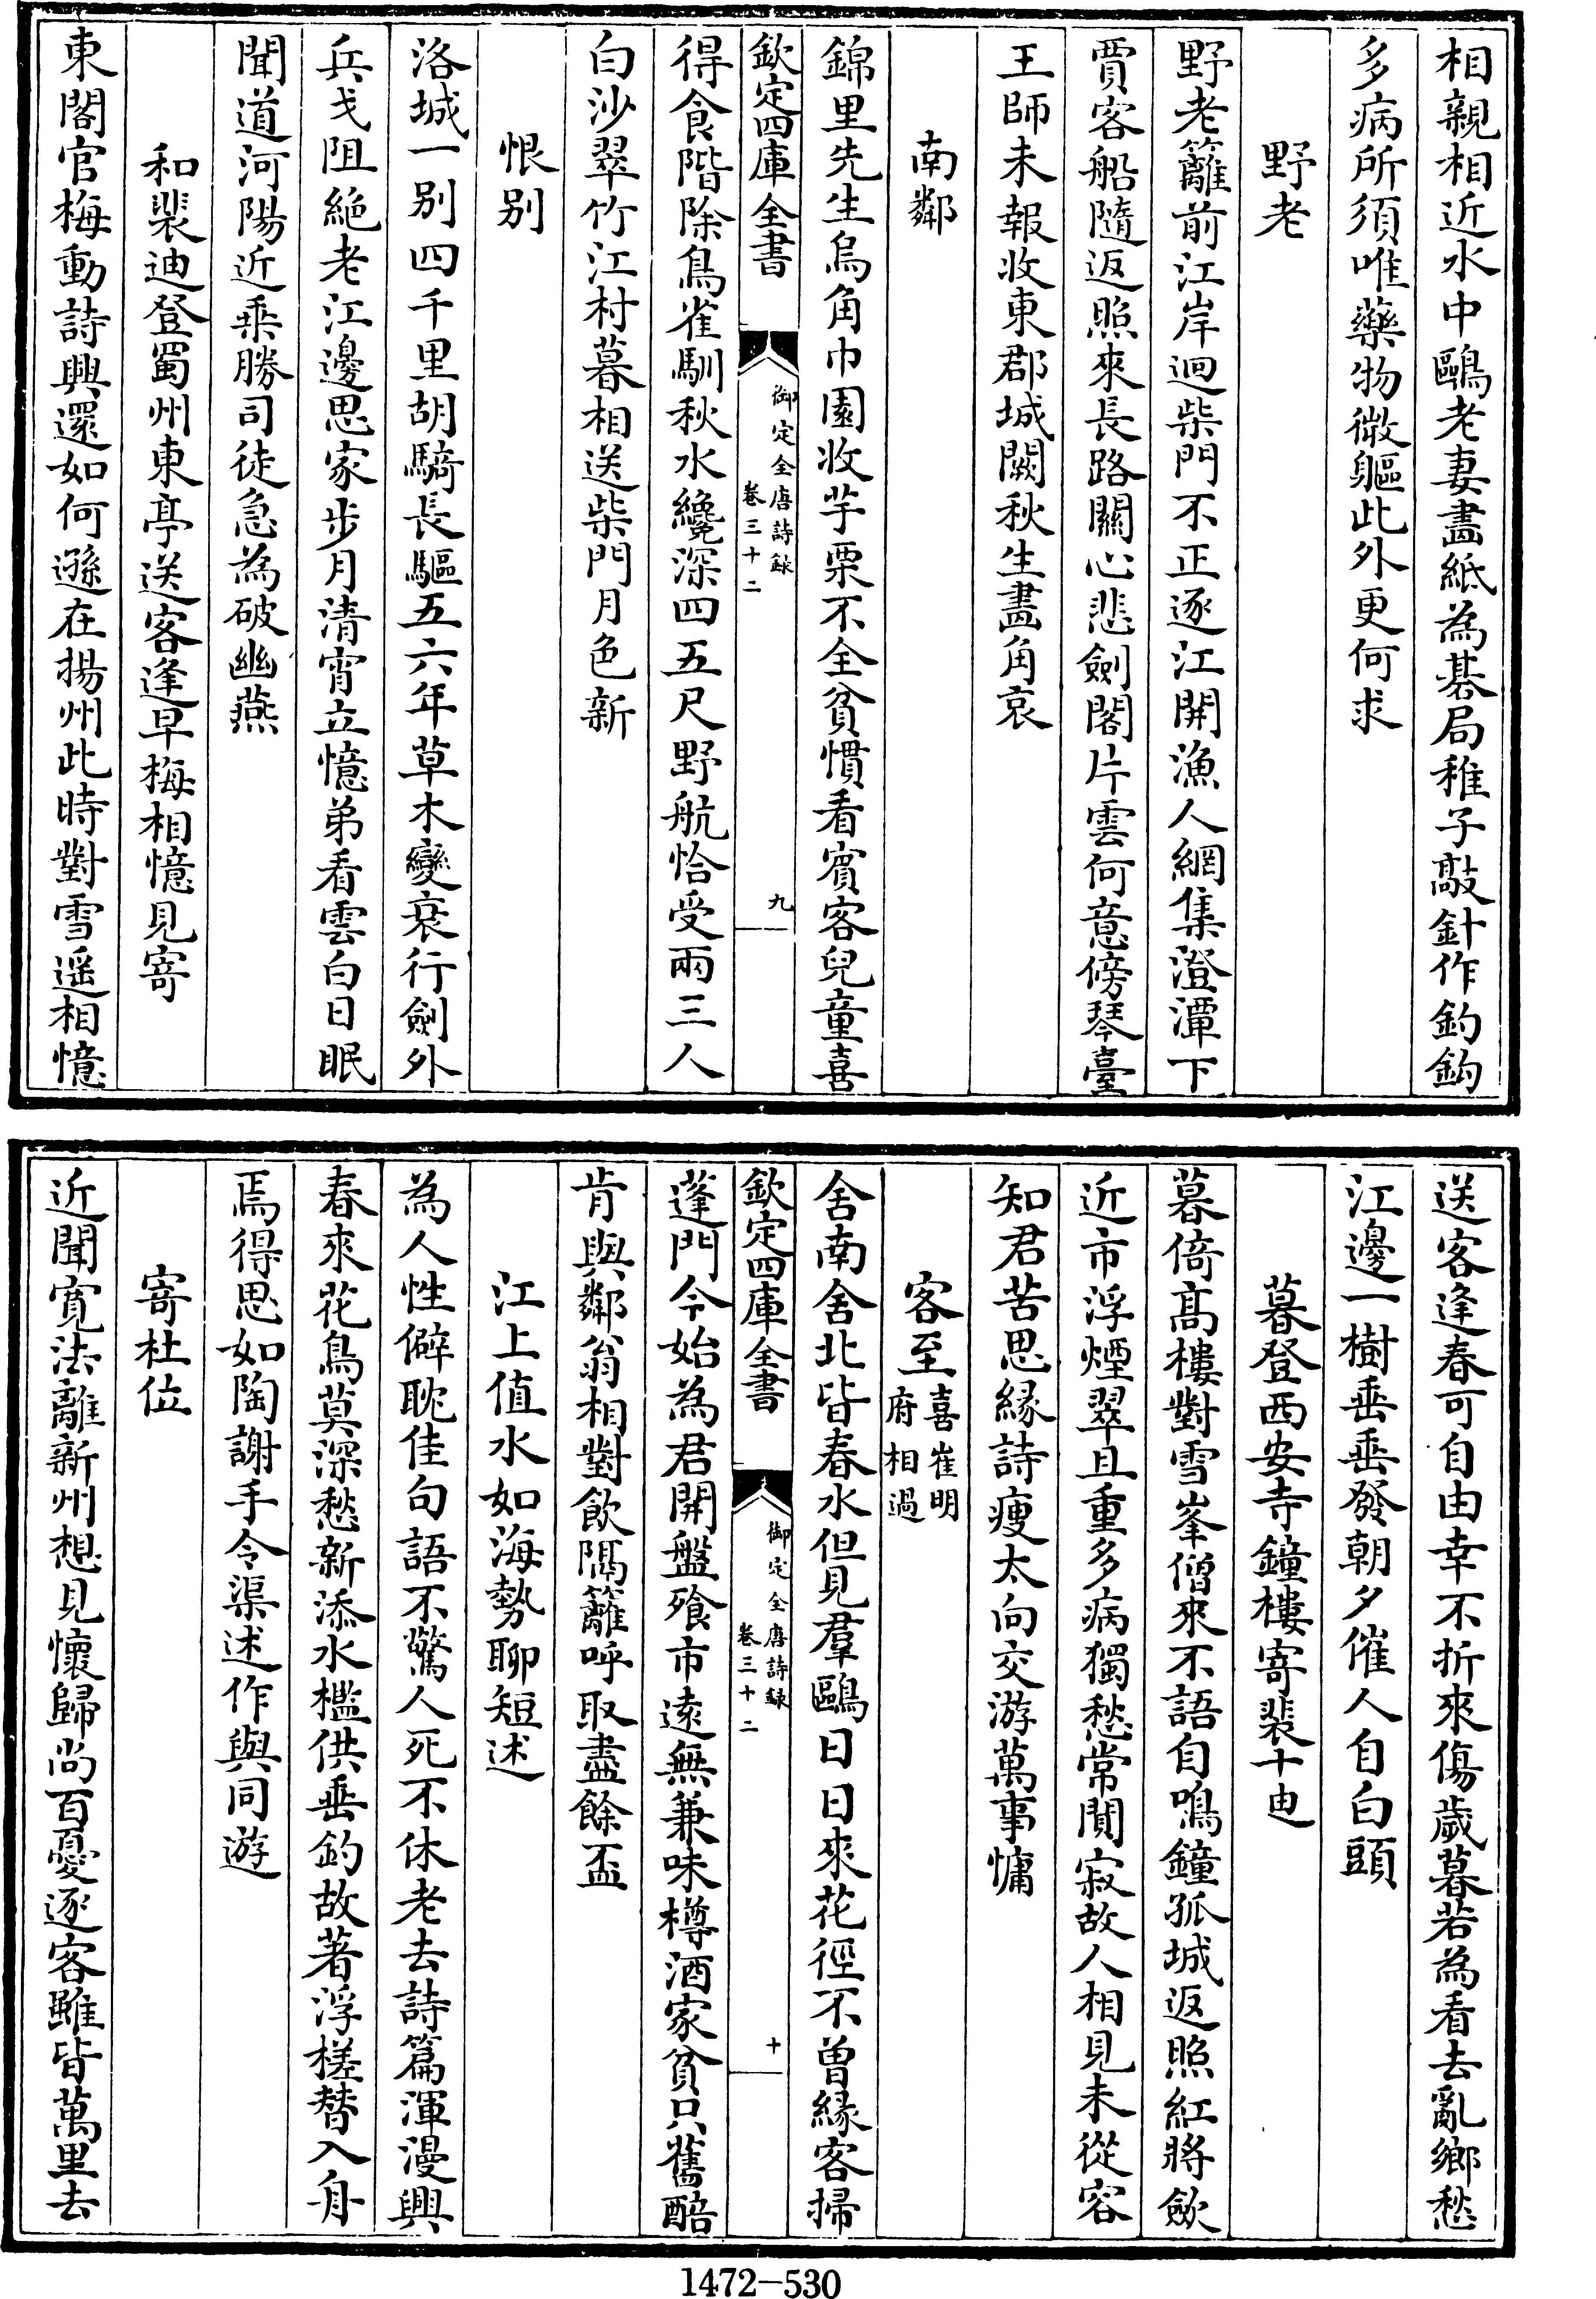 相親相近水中鷗老妻畫紙為棊局稚子敲針作釣鈎
多病所須唯藥物微軀此外更何求
野老
野老籬前江岸迴柴門不正逐江開漁人網集澄潭下
賈客船隨返照來長路關心悲劍閣片雲何意傍琴臺
王師未報收東郡城闕秋生畫角哀
南鄰
錦里先生烏角巾園收芋栗不全貧慣看賓客兒童喜
欽定四庫全書
御定全唐詩録
卷三十二
九
得食階除鳥雀馴秋水纔深四五尺野航恰受兩三人
白沙翠竹江村暮相送柴門月色新
恨别
洛城一别四千里胡騎長驅五六年草木變衰行劍外
兵戈阻絶老江邊思家步月清宵立憶弟看雲白日眠
聞道河陽近乗勝司徒急為破幽燕
和裴迪登蜀州東亭送客逢早梅相憶見寄
東閣官梅動詩興還如何遜在揚州此時對雪遥相憶
送客逢春可自由幸不折來傷歲暮若為看去亂鄉愁
江邊一樹垂垂發朝夕催人自白頭
暮登西安寺鐘樓寄裴十迪
暮倚髙樓對雪峯僧來不語自鳴鐘孤城返照紅將歛
近市浮煙翠且重多病獨愁常閴寂故人相見未從容
知君苦思縁詩瘦太向交游萬事慵
客至喜崔明府相過
舍南舍北皆春水但見羣鷗日日來花徑不曾縁客掃
欽定四庫全書
御定全唐詩録
卷三十二
十
蓬門今始為君開盤飱市逺無兼味樽酒家貧只舊醅
肯與鄰翁相對飲隔籬呼取盡餘盃
江上值水如海勢聊短述
為人性僻耽佳句語不驚人死不休老去詩篇渾漫興
春來花鳥莫深愁新添水檻供垂釣故著浮槎替入舟
焉得思如陶謝手令渠述作與同遊
寄杜位
近聞寛法離新州想見懷歸尚百憂逐客雖皆萬里去
1472-530